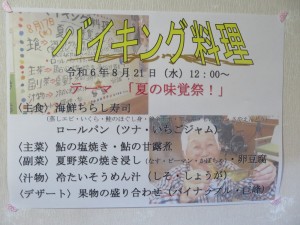 バイキング料理
令和6年8月21日（水）12：00～
テーマ 「夏の味覚祭！」
〈主食〉海鮮ちらし寿司
（蒸しエビ・いくら・鮭のほぐし身・
ロールパン（ツナ・いちごジャム）
〈主菜〉鮎の塩焼き・鮎の甘露煮
〈副菜〉夏野菜の焼き浸し（なす・ピーマン・かぼちゃ）・卵豆腐
〈汁物〉冷たいそうめん汁（しそ・しょうが）
〈デザート〉果物の盛り合わせ（パイナップル・巨峰）